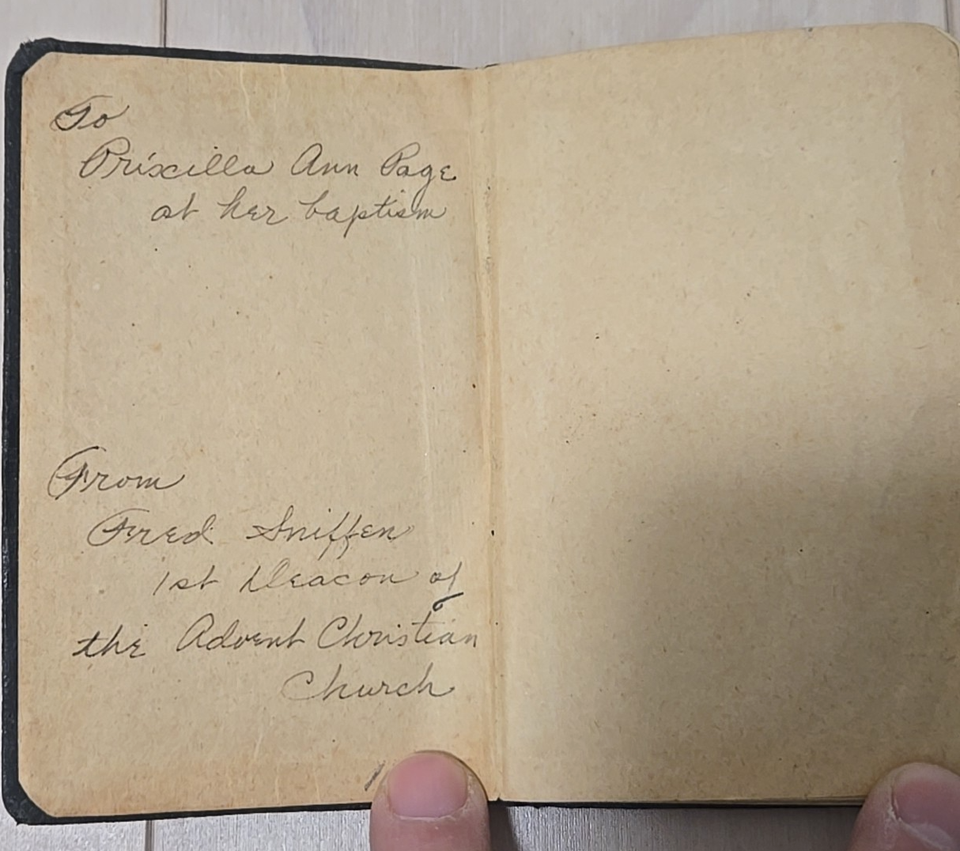 To
Priscilla Ann Page
at her baptism
From
Fred Sniffen
1st Deacon of
the Advent Christian
Church